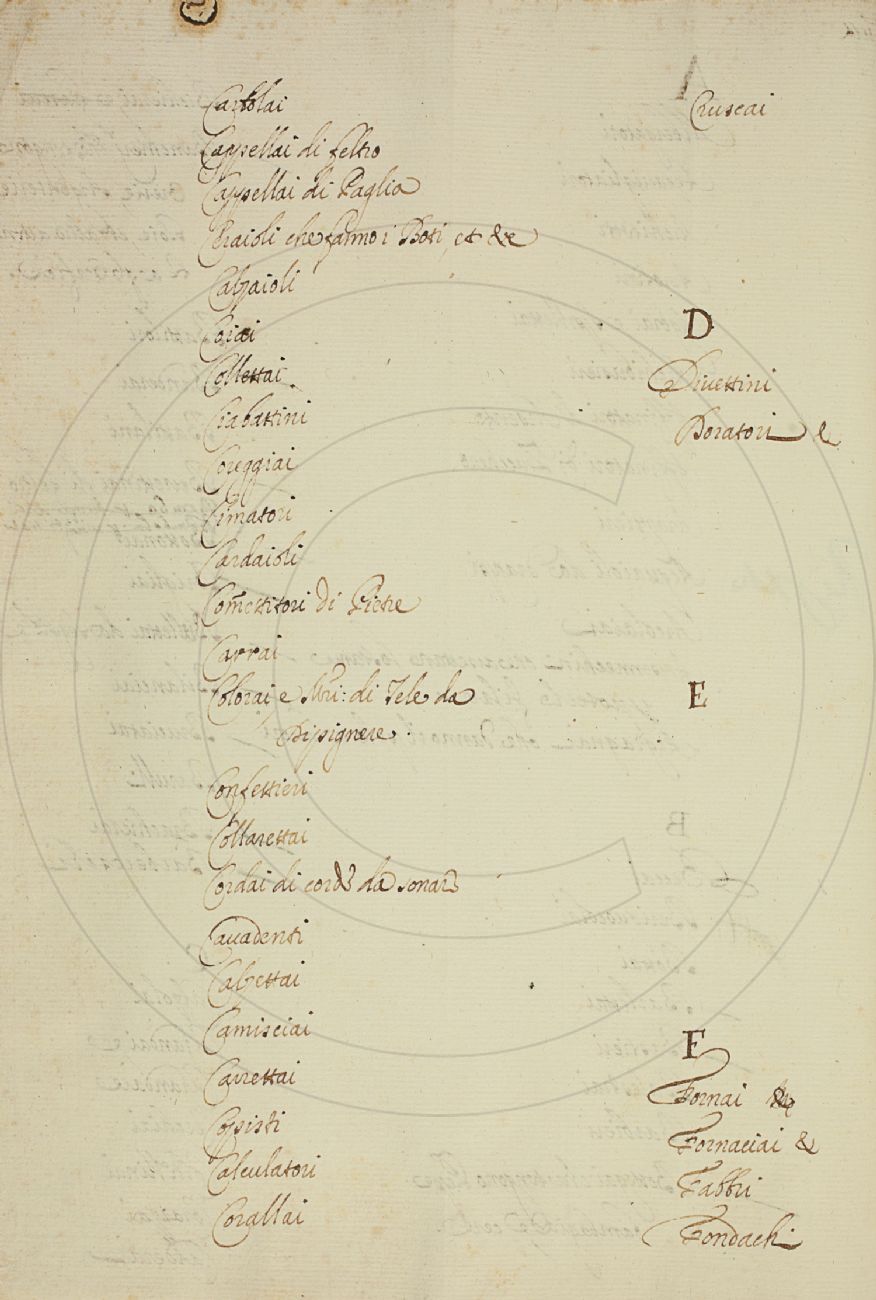 Cartolai
Cappellai di feltro
Cappellai di Paglia
Ceraioli che fanno i Boti, et &c
Calzaioli
Coiai
Collettai
Ciabattini
Coreggiai
Cimatori
Cardaioli
Comettitori di Pietre
Carrai
Colorai e Mri: di Tele da
Dipignere
Confettieri
Collarettai
Cordai di corde da sonare
Cavadenti
Calzettai
Camisciai
Carrettai
Copisti
Calculatori
Corallai
Cruscai
D
Divettini
Doratori &
E
F
Fornai &c
Fornaciai &
Fabbri
Fondachi